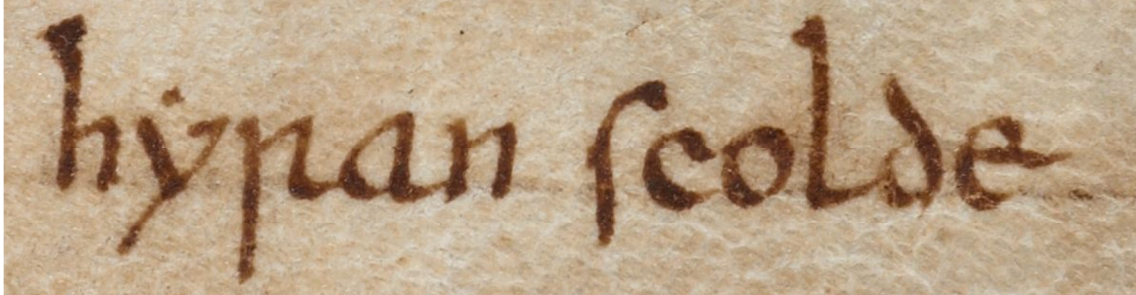 hyran scolde